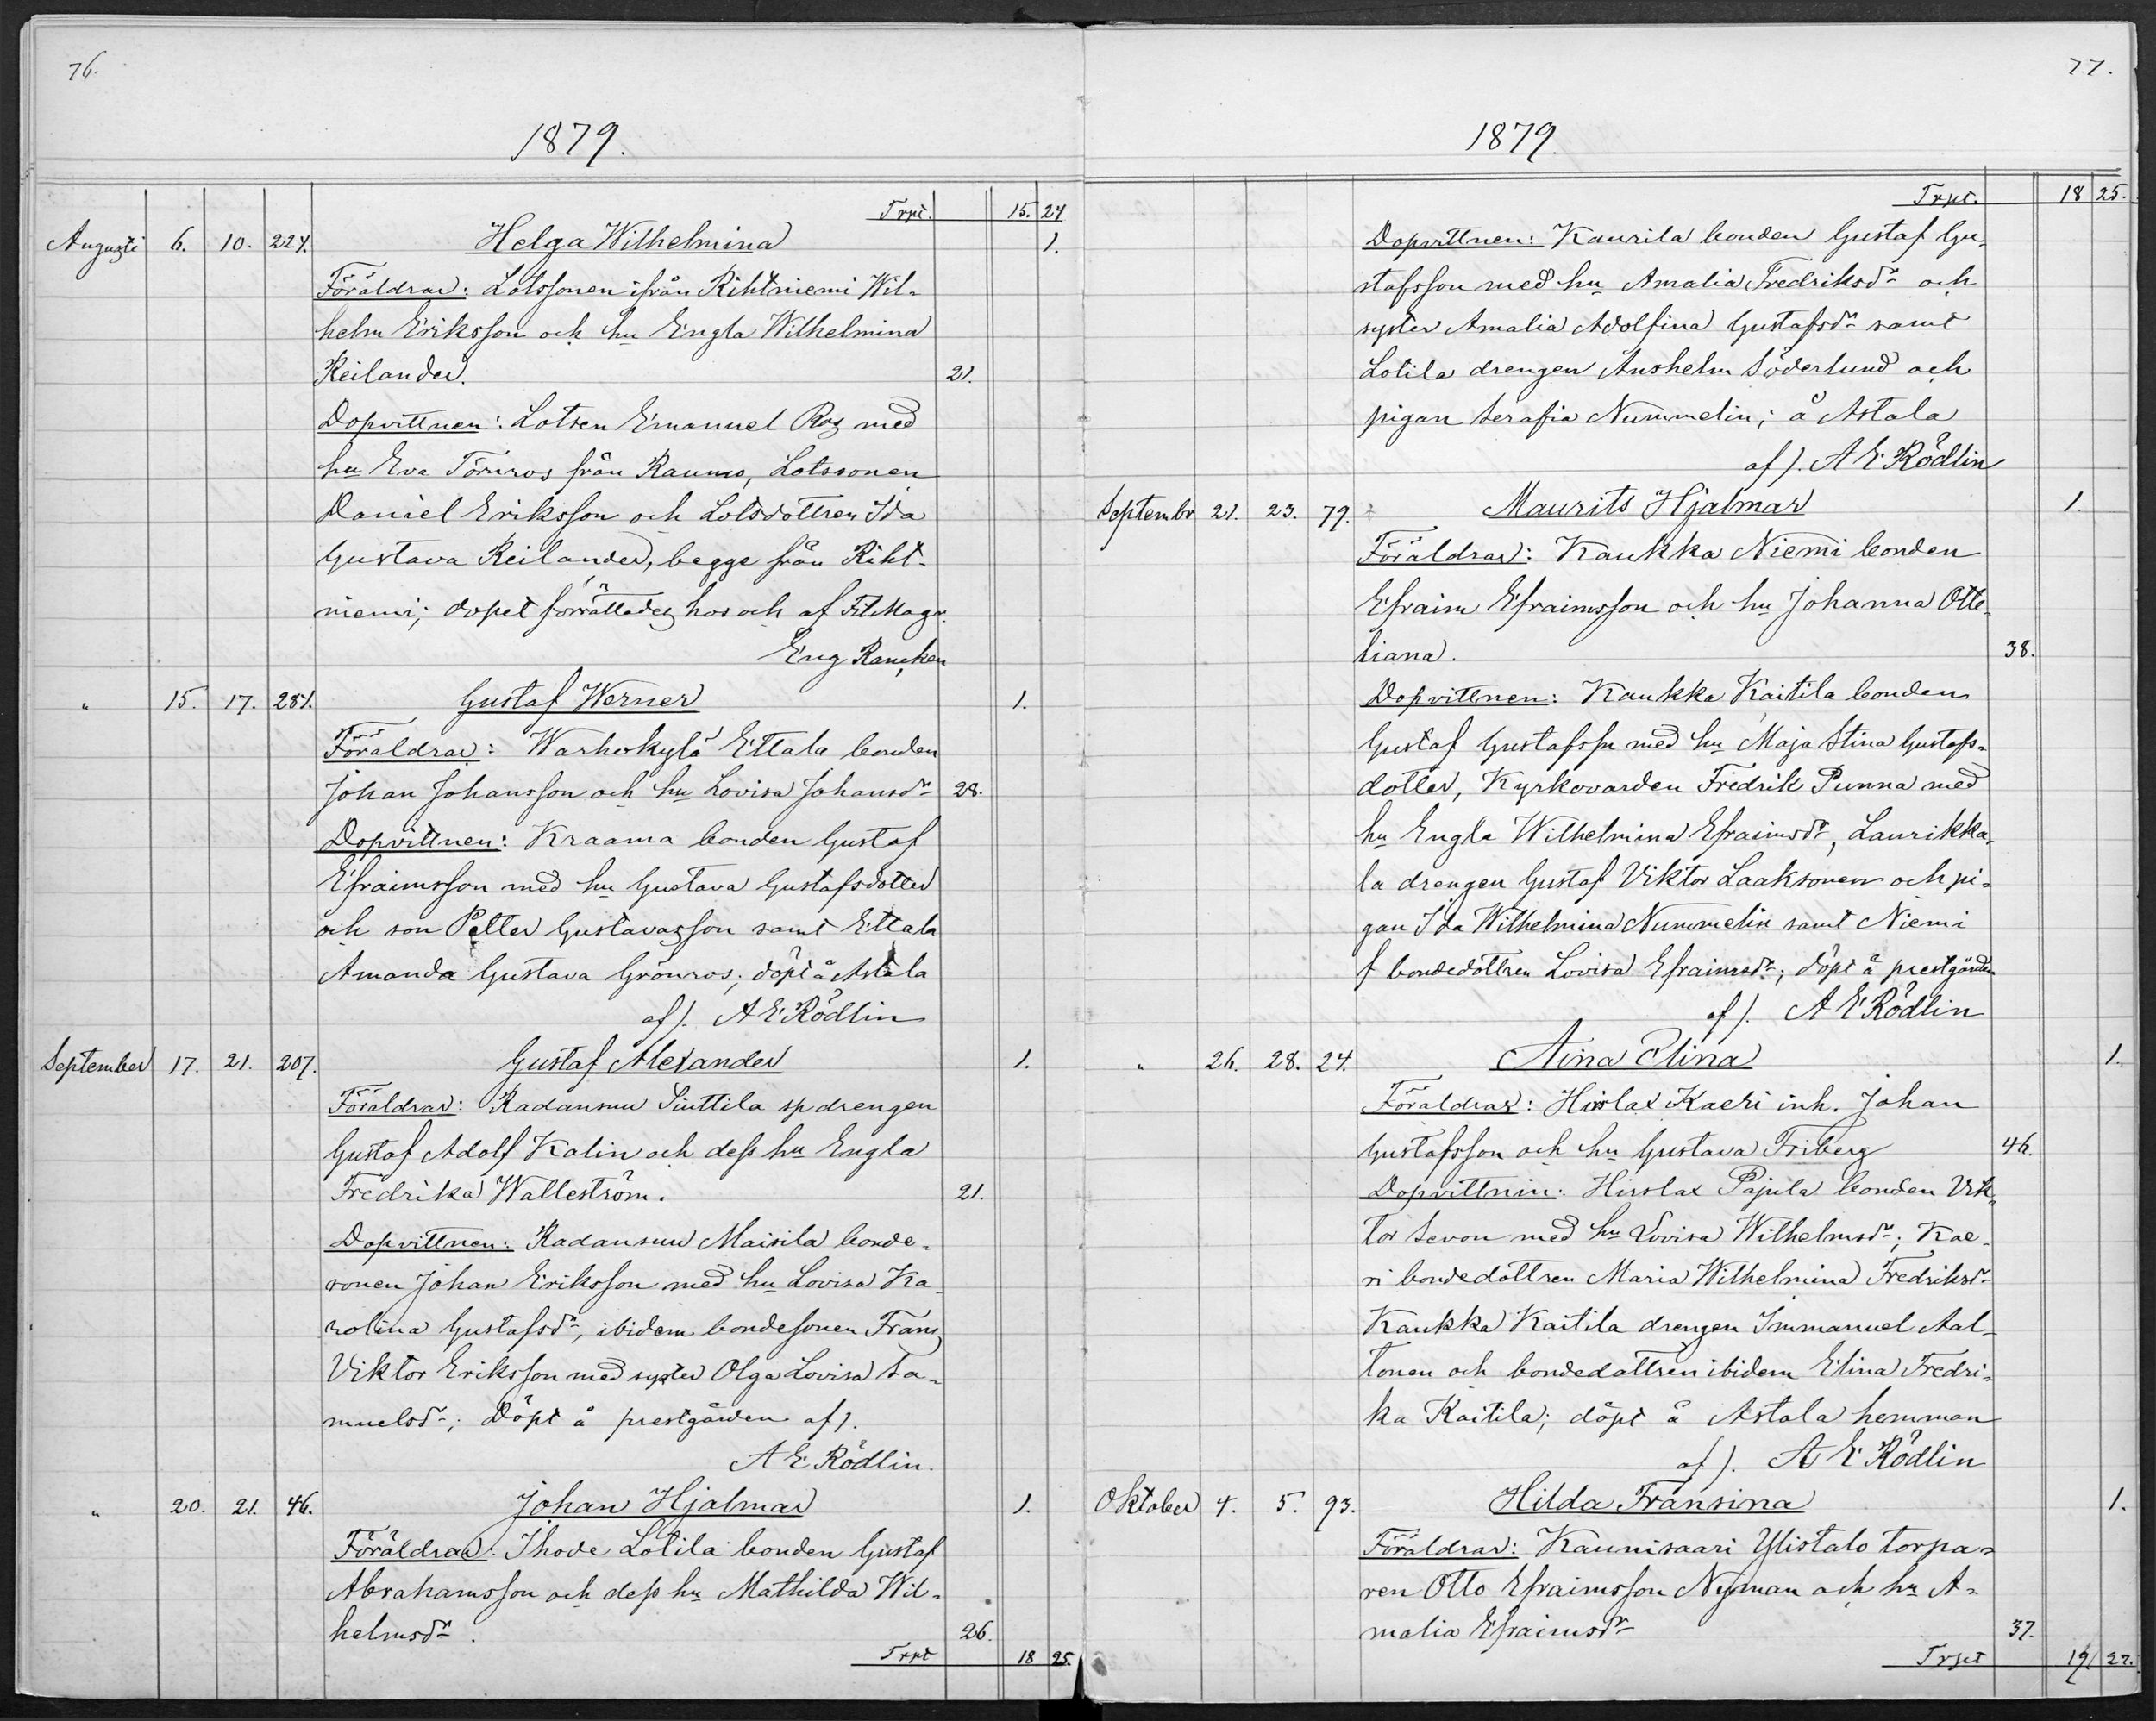 76.
1879.
Trpt. 15. 24
Augusti 6. 10. 224. Helga Wilhelmina 1.
Föräldrar: Lotssonen ifrån Rihtniemi Wil-
helm Eriksson och hu Engla Wilhelmina
Reilander. 21.
Dopvittnen: Lotsen Emanuel Ros med
hu Eva Törnros från Raumo, Lotssonen
Daniel Eriksson och Lotsdottren Ida
Gustava Reilander, begge från Riht-
niemi; dopet förrättades hos och af Fil Mag.
Eng Rancken
" 15. 17. 281. Gustaf Werner 1.
Föräldrar: Warhokylä Ettala bonden
Johan Johansson och hu Lovisa Johansdr 28.
Dopvittnen: Kraama bonden Gustaf
Efraimsson med hu Gustava Gustafsdotter
och son Petter Gustavasson samt Ettala
Amanda Gustava Grönros; döpt å Astala
af). A E Rödlin
September 17. 21. 207. Gustaf Alexander 1.
Föräldrar: Radansuu Siuttila sp drengen
Gustaf Adolf Kalin och dess hu Engla
Fredrika Walleström. 21.
Dopvittnen: Radansuu Maisila bonde-
sonen Johan Eriksson med hu Lovisa Ka-
rolina Gustafsdr, ibidem bondesonen Frans
Viktor Eriksson med syster Olga Lovisa Sa-
muelsdr; Döpt å prestgården af).
A E Rödlin.
" 20. 21. 46. Johan Hjalmar 1.
Föräldrar: Ihode Lotila bonden Gustaf
Abrahamsson och dess hu Mathilda Wil-
helmsdr. 26.
Trpt 18 25.
77.
1879.
Trpt. 18 25.
Dopvittnen: Kaurila bonden Gustaf Gu-
stafsson med hu Amalia Fredriksdr och
syster Amalia Adolfina Gustafsdr samt
Lotila drengen Anshelm Söderlund och
pigan Serafia Nummelin; å Astala
af). A E Rödlin
Septembr 21. 23. 79. Maurits Hjalmar 1.
Föräldrar: Kaukka Niemi bonden
Efraim Efraimsson och hu Johanna Otte-
liana. 38.
Dopvittnen: Kaukka Kaitila bonden
Gustaf Gustafssn med hu Maja Stina Gustafs-
dotter, Kyrkovarden Fredrik Punna med
hu Engla Wilhelmina Efraimsdr, Laurikka-
la drengen Gustaf Viktor Laaksonen och pi-
gan Ida Wilhelmina Nummelin samt Niemi
f bondedottren Lovisa Efraimsdr; döpt å prestgården
af). A E Rödlin
" 26. 28. 24. Aina Elina 1.
Föräldrar: Hirslax Kaeri inh. Johan
Gustafsson och hu Gustava Friberg 46.
Dopvittnin: Hirslax Pajula bonden Vik-
tor Sevon med hu Lovisa Wilhelmsdr; Kae-
ri bondedottren Maria Wilhelmina Fredriksdr
Kaukka Kaitila drengen Immanuel Aal-
tonen och bondedottren ibidem Elina Fredri-
ka Kaitila; döpt å Astala hemman
af). A E Rödlin
Oktober 4. 5. 93. Hilda Fransina 1.
Föräldrar: Kaunisaari Ylistalo torpa-
ren Otto Efraimsson Nyman och hu A-
malia Efraimsdr 37.
Trpt 19. 27.